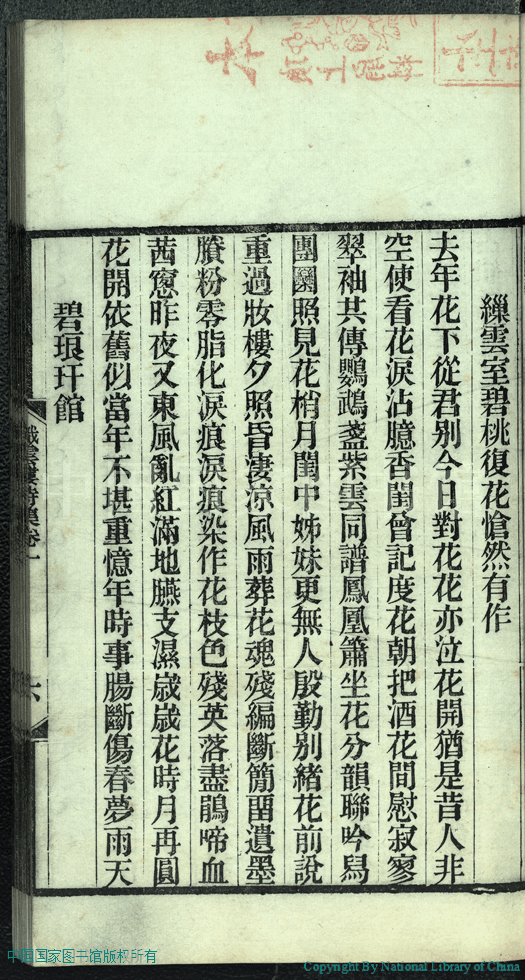 繅雲室碧桃復花愴然有作
去年花下從君别今日對花花亦泣花開猶是昔人非
空使看花淚沾臆香閨曾記度花朝把酒花間慰寂寥
翠袖共傳鸚鵡盞紫雲同譜鳳凰簫坐花分韻聯吟舄
團圞照見花梢月閨中姊妹更無人殷勤别緒花前說
重過妝樓夕照昏淒涼風雨葬花魂殘編斷簡畱遺墨
賸粉零脂化淚痕淚痕染作花枝色殘英落盡鵑啼血
茜窻昨夜又東風亂紅滿地臙支濕歲歲花時月再圓
花開依舊似當年不堪重憶年時事腸斷傷春夢雨天
碧琅玕館
六
中国国家图书馆版权所有
Copyright By National Library of China